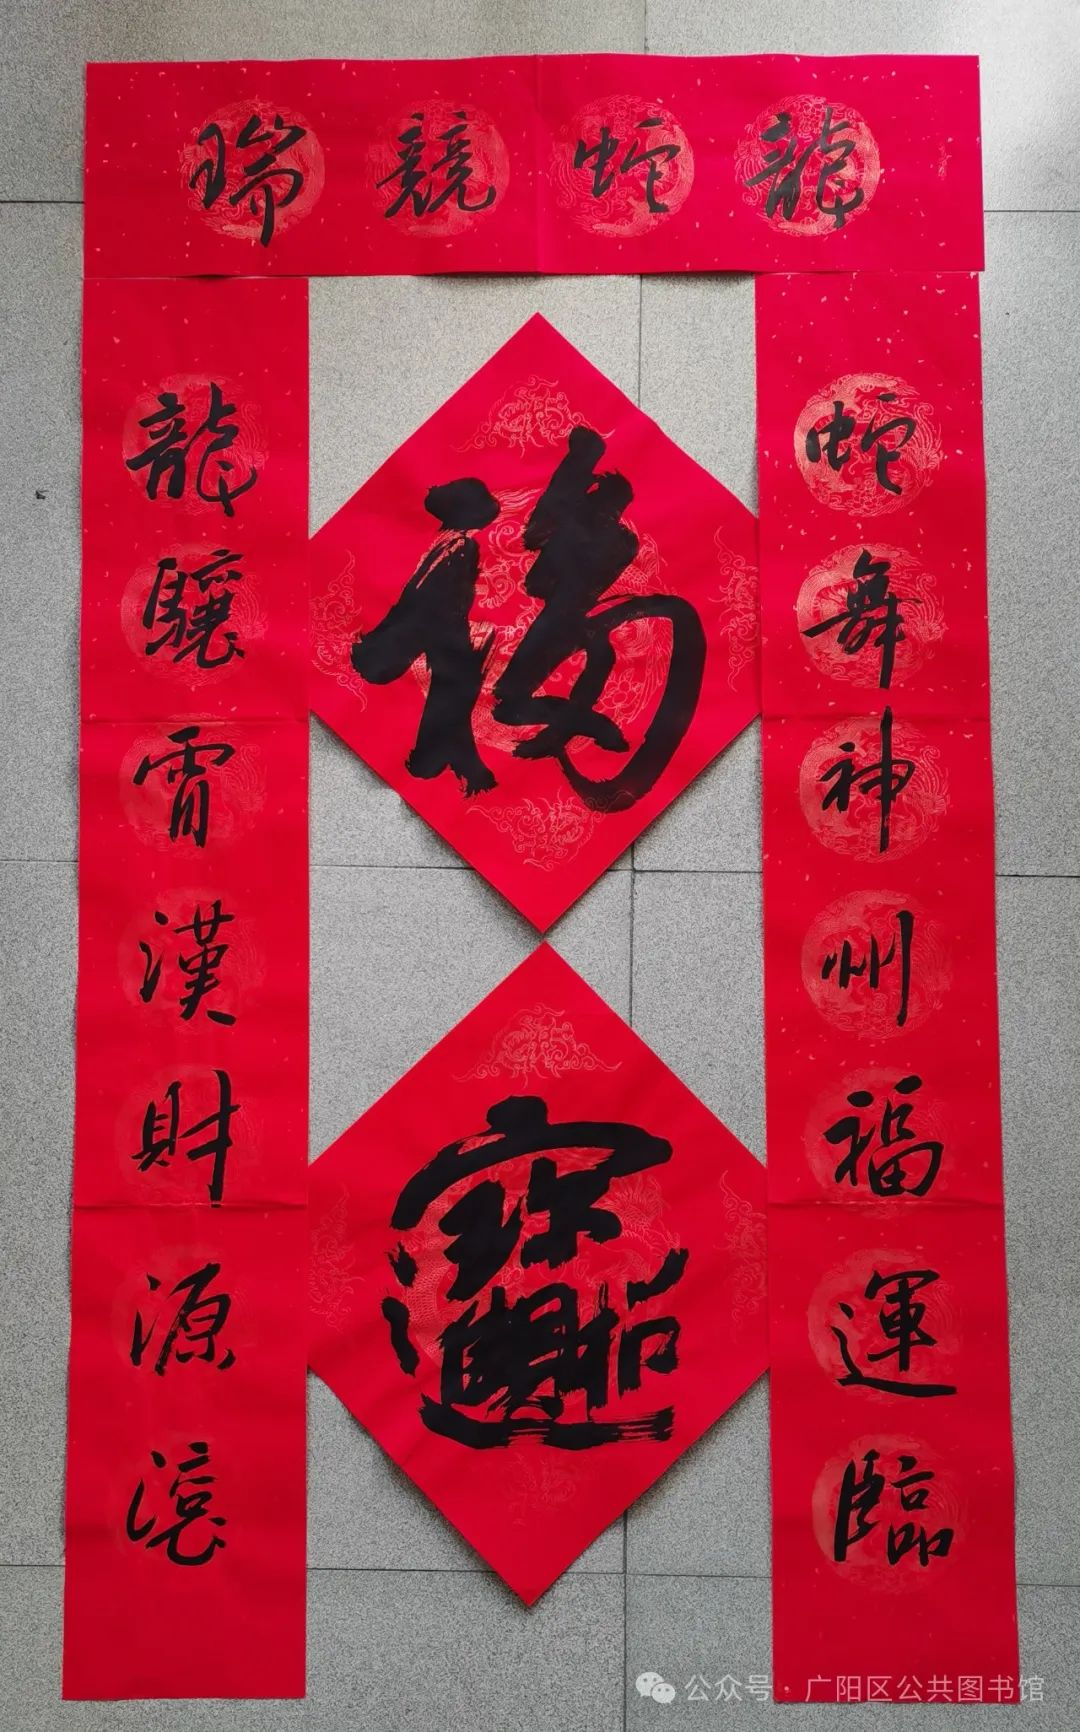 龍蛇競瑞
蛇舞神州福運臨
龍驤霄漢財源滾
福
招財進寳
公众号 · 广阳区公共图书馆